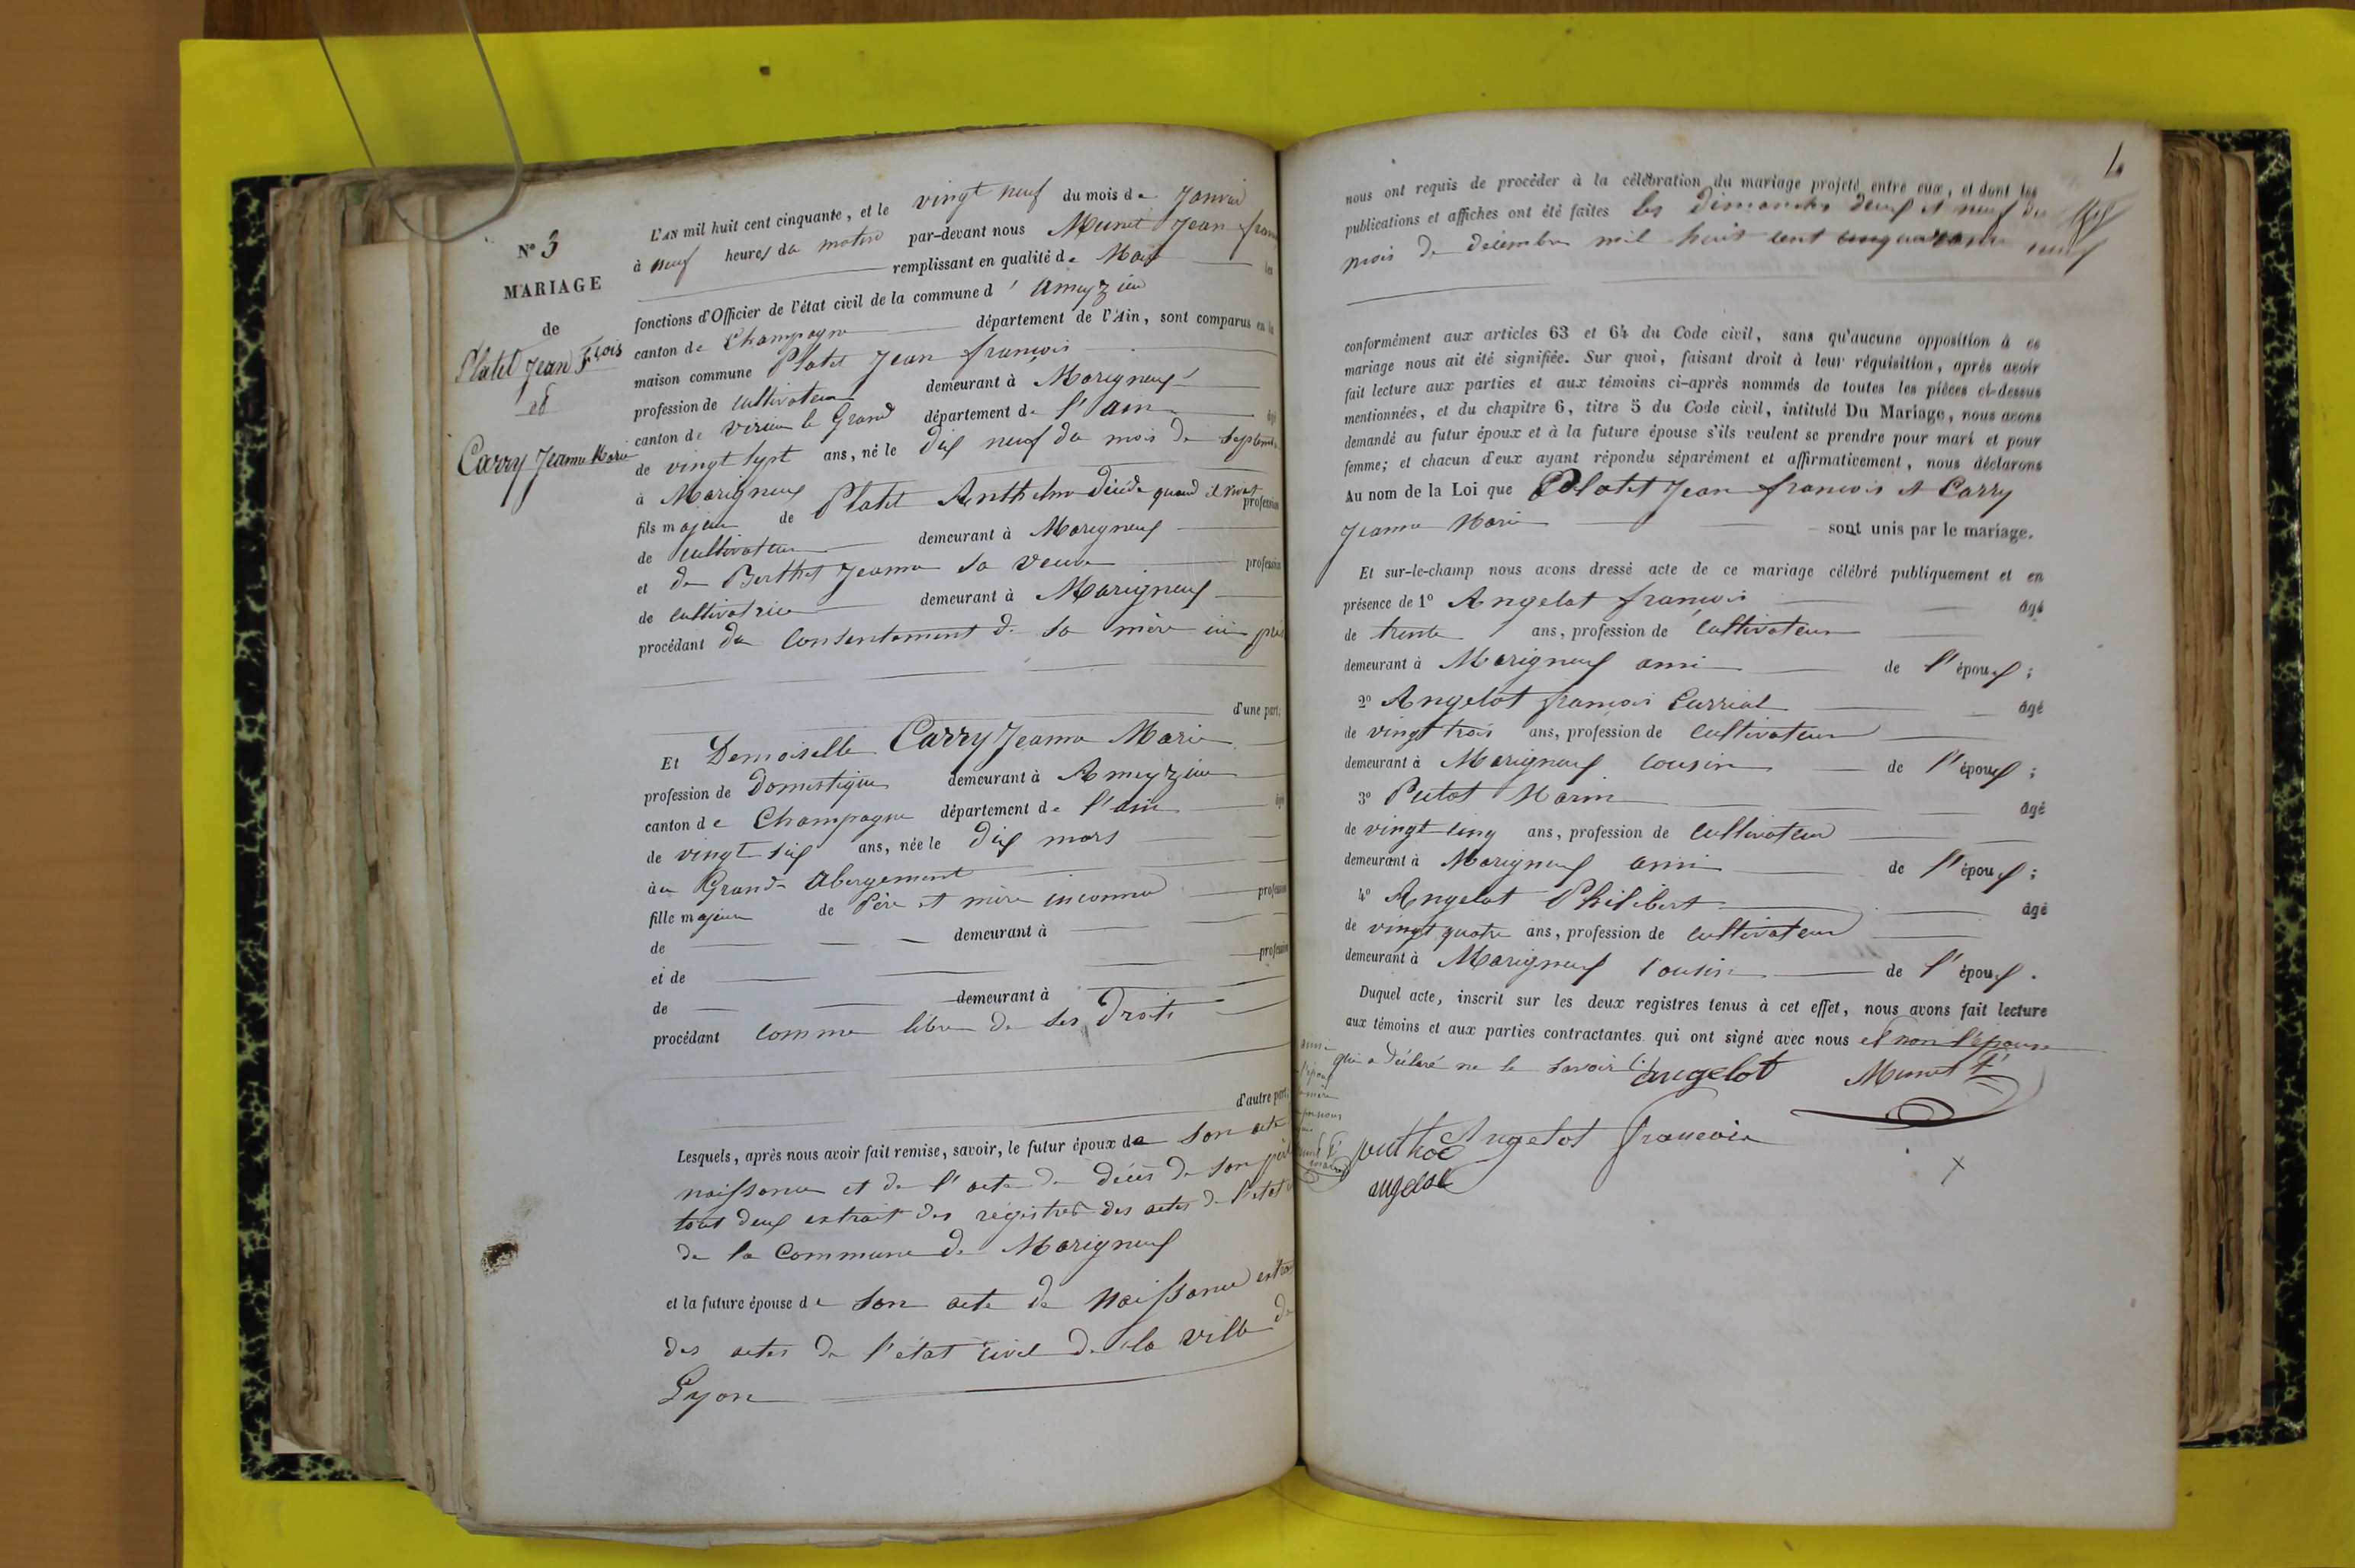 N° 3
MARIAGE
de
Platet Jean Fçois
et
Carry Jeanne Marie
L'AN mil huit cent cinquante, et le vingt neuf du mois de Janvier
à neuf heures du matin par-devant nous Munet Jean
remplissant en qualité de Maire les
fonctions d'Officier de l'état civil de la commune d'Ameyzieu
canton de Champagne département de l'Ain, sont comparus en la
maison commune Platet Jean françois
profession de cultivateur demeurant à Marigneux
canton de virieu le Grand département de l'ain âgé
de vingt sept ans, né le dix neuf du mois de septembre
à Marigneux
fils majeur de Platet Anthelme décédé quand il vivait profession
de cultivateur demeurant à Marigneux
et de Berthet Jeanne sa veuve profession
de cultivatrice demeurant à Marigneux
procédant du consentement de sa mère ici
d'une part,
Et Demoiselle Carry Jeanne Marie
profession de domestique demeurant à Ameyzieu
canton de Champagne département de l'ain âgé
de vingt six ans, née le dix mars
au Grand Abergement
fille majeure de Père et mère inconnu profession
de demeurant à
et de profession
de demeurant à
procédant comme libre de ses droits
d'autre part,
Lesquels, après nous avoir fait remise, savoir, le futur époux de son acte
naissance et de l'acte de décès de son père
tout deux extrait des registres des actes de l'etat
de la Commune de Marigneux
et la future épouse de son acte de Naissance
des actes de l'état civil de la ville de
Lyon
nous ont requis de procéder à la célébration du mariage projeté entre eux, et dont les
publications et affiches ont été faites les dimanches deux et neuf du
mois de décembre mil huit cent neuf
conformément aux articles 63 et 64 du Code civil, sans qu'aucune opposition à ce
mariage nous ait été signifiée. Sur quoi, faisant droit à leur réquisition, après avoir
fait lecture aux parties et aux témoins ci-après nommés de toutes les pièces ci-dessus
mentionnées, et du chapitre 6, titre 5 du Code civil, intitulé Du Mariage, nous avons
demandé au futur époux et à la future épouse s'ils veulent se prendre pour mari et pour
femme; et chacun d'eux ayant répondu séparément et affirmativement, nous déclarons
Au nom de la Loi que Platet Jean françois et Carry
Jeanne Marie sont unis par le mariage.
Et sur-le-champ nous avons dressé acte de ce mariage célébré publiquement et en
présence de 1° Angelot françois âgé
de trente ans, profession de cultivateur
demeurant à Marigneux ami de l'époux;
2° Angelot françois Curriat âgé
de vingt trois ans, profession de cultivateur
demeurant à Marigneux cousin de l'époux;
3° Putot Marin âgé
de vingt cinq ans, profession de cultivateur
demeurant à Marigneux ami de l'époux;
4° Angelot Philibert âgé
de vingt quatre ans, profession de cultivateur
demeurant à Marigneux cousin de l'époux.
Duquel acte, inscrit sur les deux registres tenus à cet effet, nous avons fait lecture
aux témoins et aux parties contractantes qui ont signé avec nous et non l'épouse
qui a déclaré ne le savoir
angelot Munet
Angelot francois
angelot